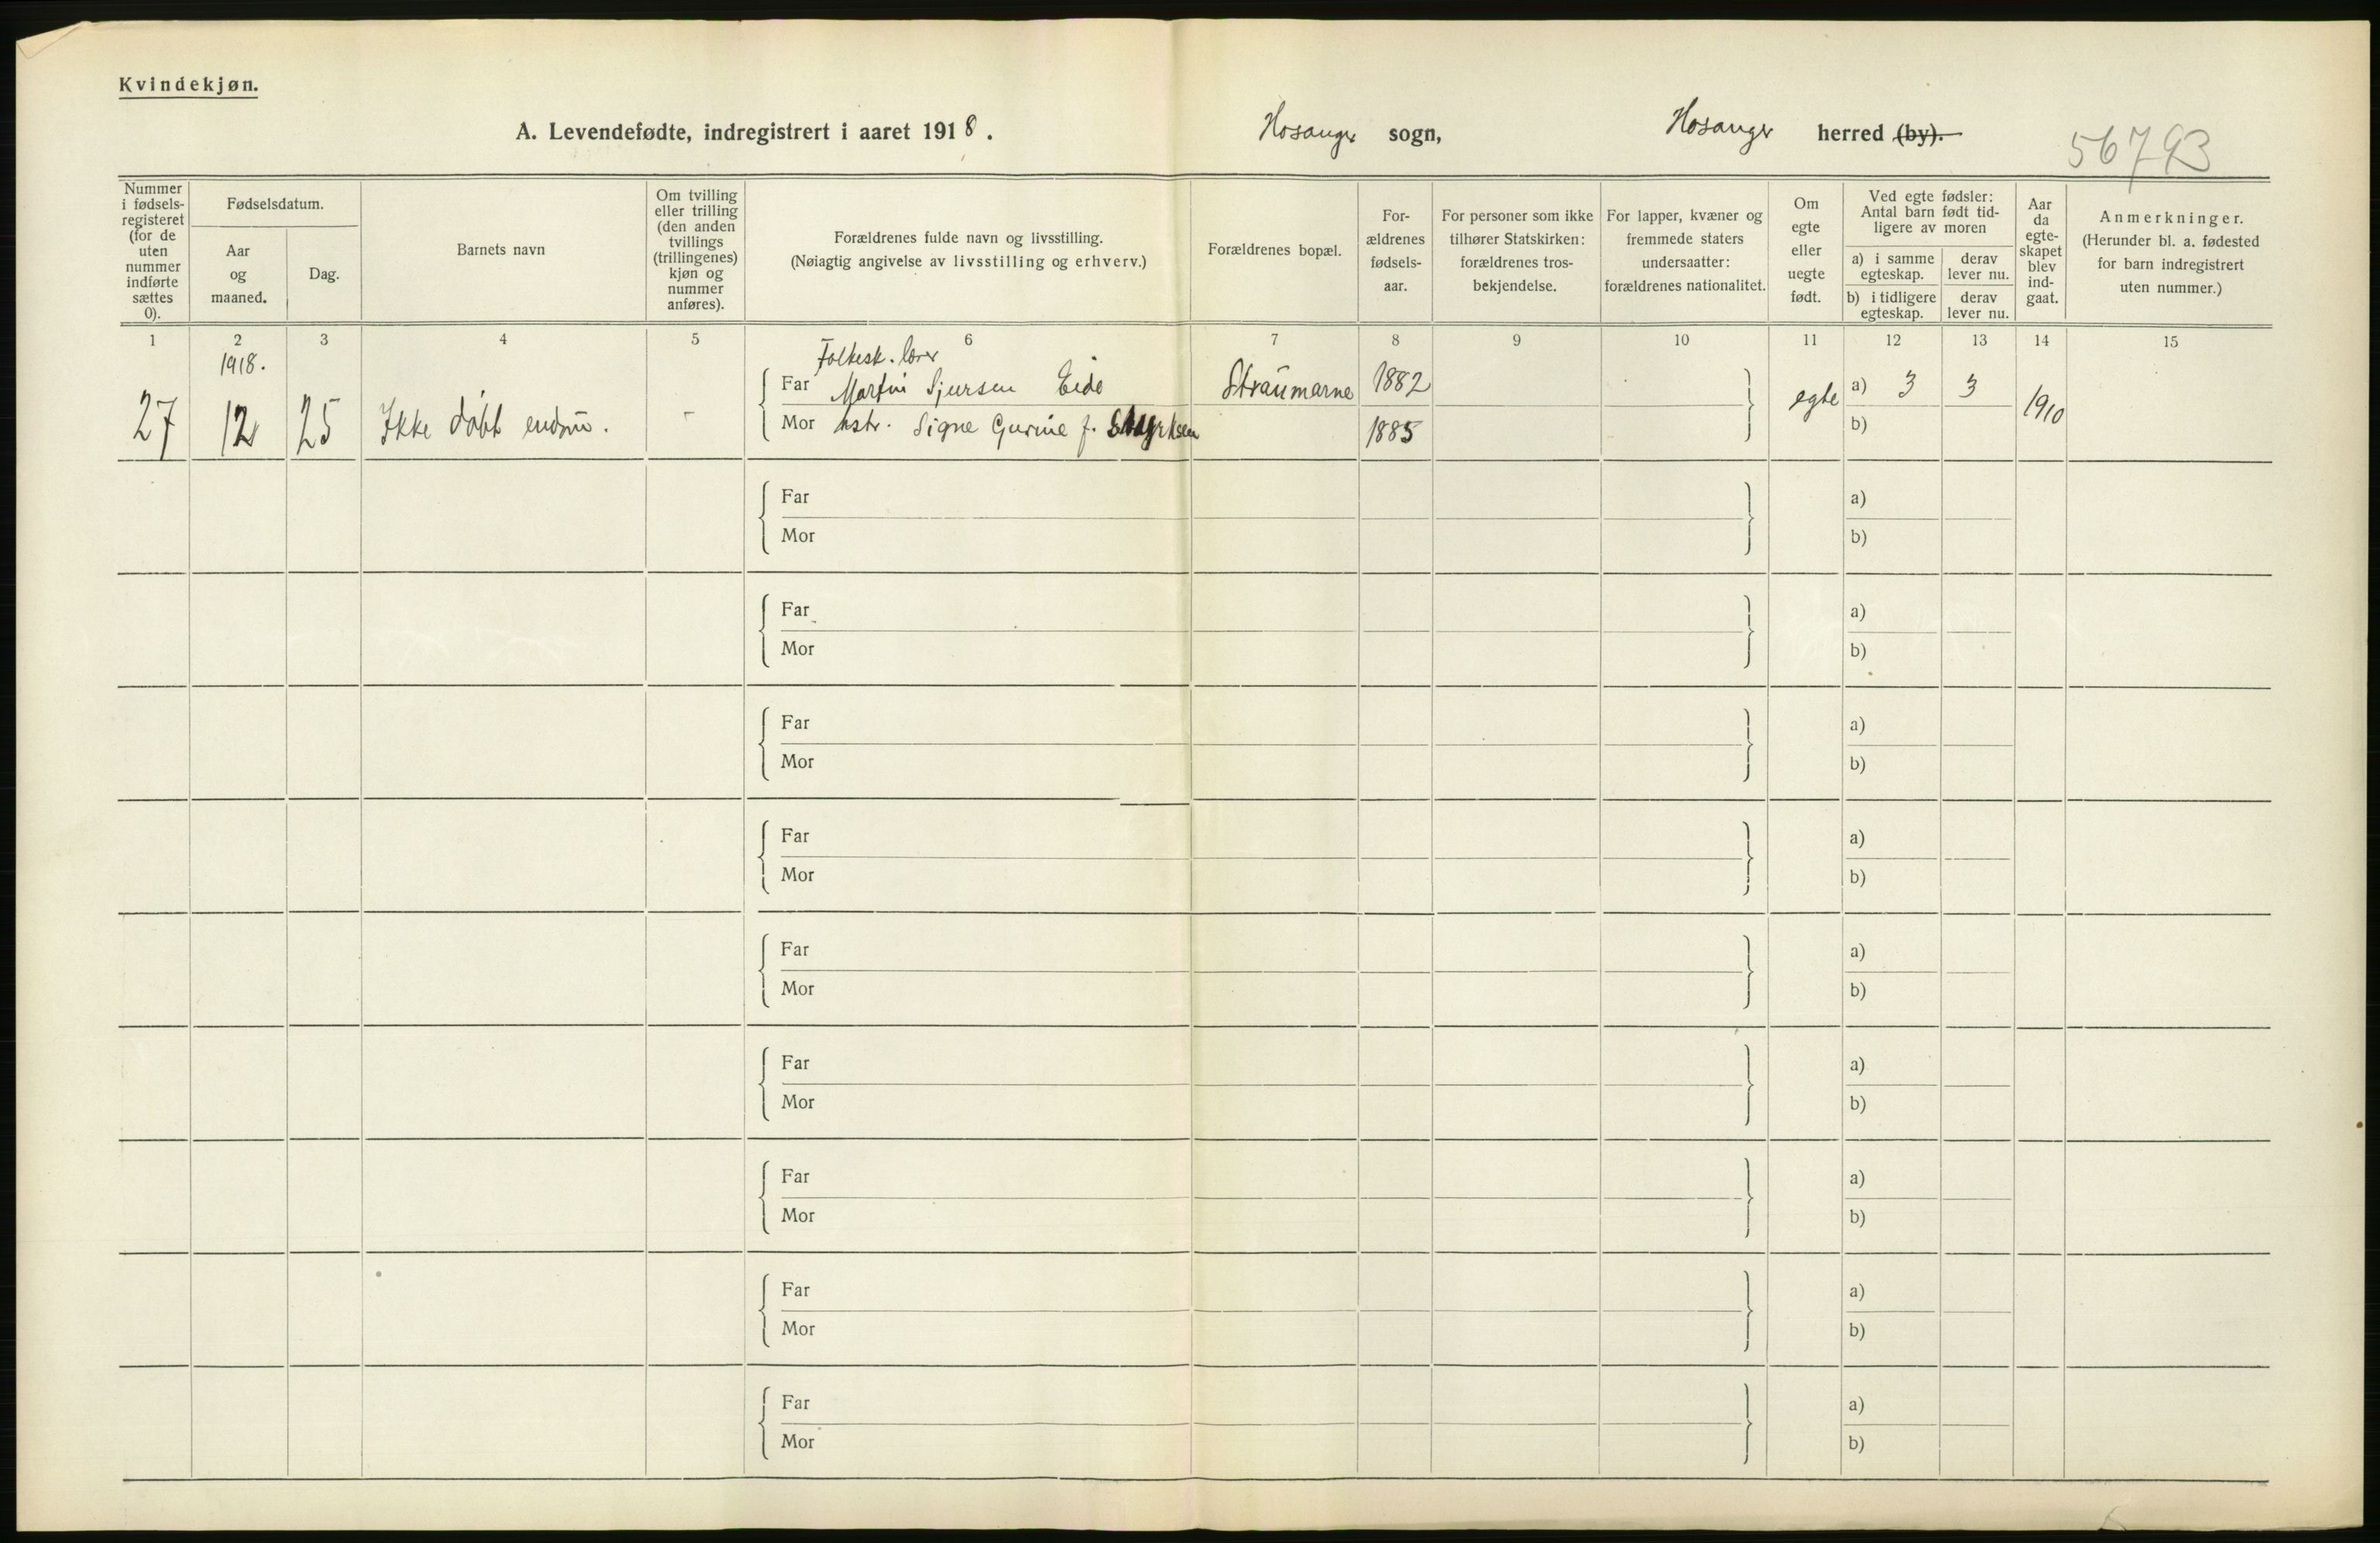 Kvindekjøn.
A. Levendefødte, indregistrert i aaret 1918.
Hosanger sogn,
Hosanger herred (by).
56793
Nummer i fødsels-registeret (for de uten nummer indførte sættes 0).
Fødselsdatum.
Aar og maaned.
Dag.
Barnets navn
Om tvilling eller trilling (den anden tvillings (trillingenes) kjøn og nummer anføres).
Forældrenes fulde navn og livsstilling.
(Nøiagtig angivelse av livsstilling og erhverv.)
Forældrenes bopæl.
For-ældrenes fødsels-aar.
For personer som ikke tilhører Statskirken: forældrenes tros-bekjendelse.
For lapper, kvæner og fremmede staters undersaatter: forældrenes nationalitet.
Om egte eller uegte født.
Ved egte fødsler: Antal barn født tid-ligere av moren
a) i samme egteskap.
derav lever nu.
b) i tidligere egteskap.
derav lever nu.
Aar da egte-skapet blev ind-gaat.
Anmerkninger.
(Herunder bl. a. fødested for barn indregistrert uten nummer.)
1 2 3 4 5 6 7 8 9 10 11 12 13 14 15
1918.
Folkesk. lærer
Far Martin Sjursen Eide Straumarne 1882 a) 3 3
27 12 25 Ikke døbt endnu. - egte 1910
Mor hstr. Signe Gurine f. Styrksen 1885 b)
Far a)
Mor b)
Far a)
Mor b)
Far a)
Mor b)
Far a)
Mor b)
Far a)
Mor b)
Far a)
Mor b)
Far a)
Mor b)
Far a)
Mor b)
Far a)
Mor b)